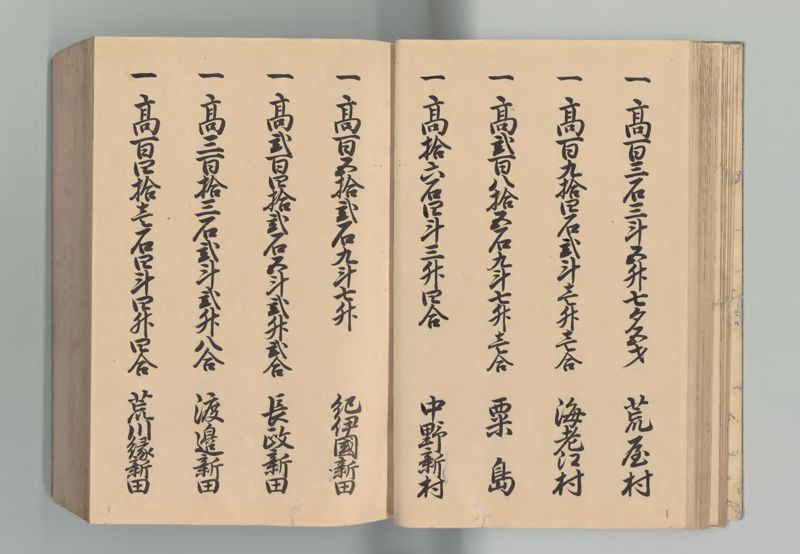 一 高百三石三斗五升七夕五才 荒屋村
一 高百九拾四石弐斗壱升壱合 海老江村
一 高弐百八拾五石九斗七升壱合 粟島
一 高拾六石四斗三升四合 中野新村
一 高百五拾弐石九斗七升 紀伊國新田
一 高弐百四拾弐石五斗弐升弐合 長政新田
一 高二百拾三石弐斗弐升八合 渡邉新田
一 高百四拾壱石四斗四升四合 荒川縁新田